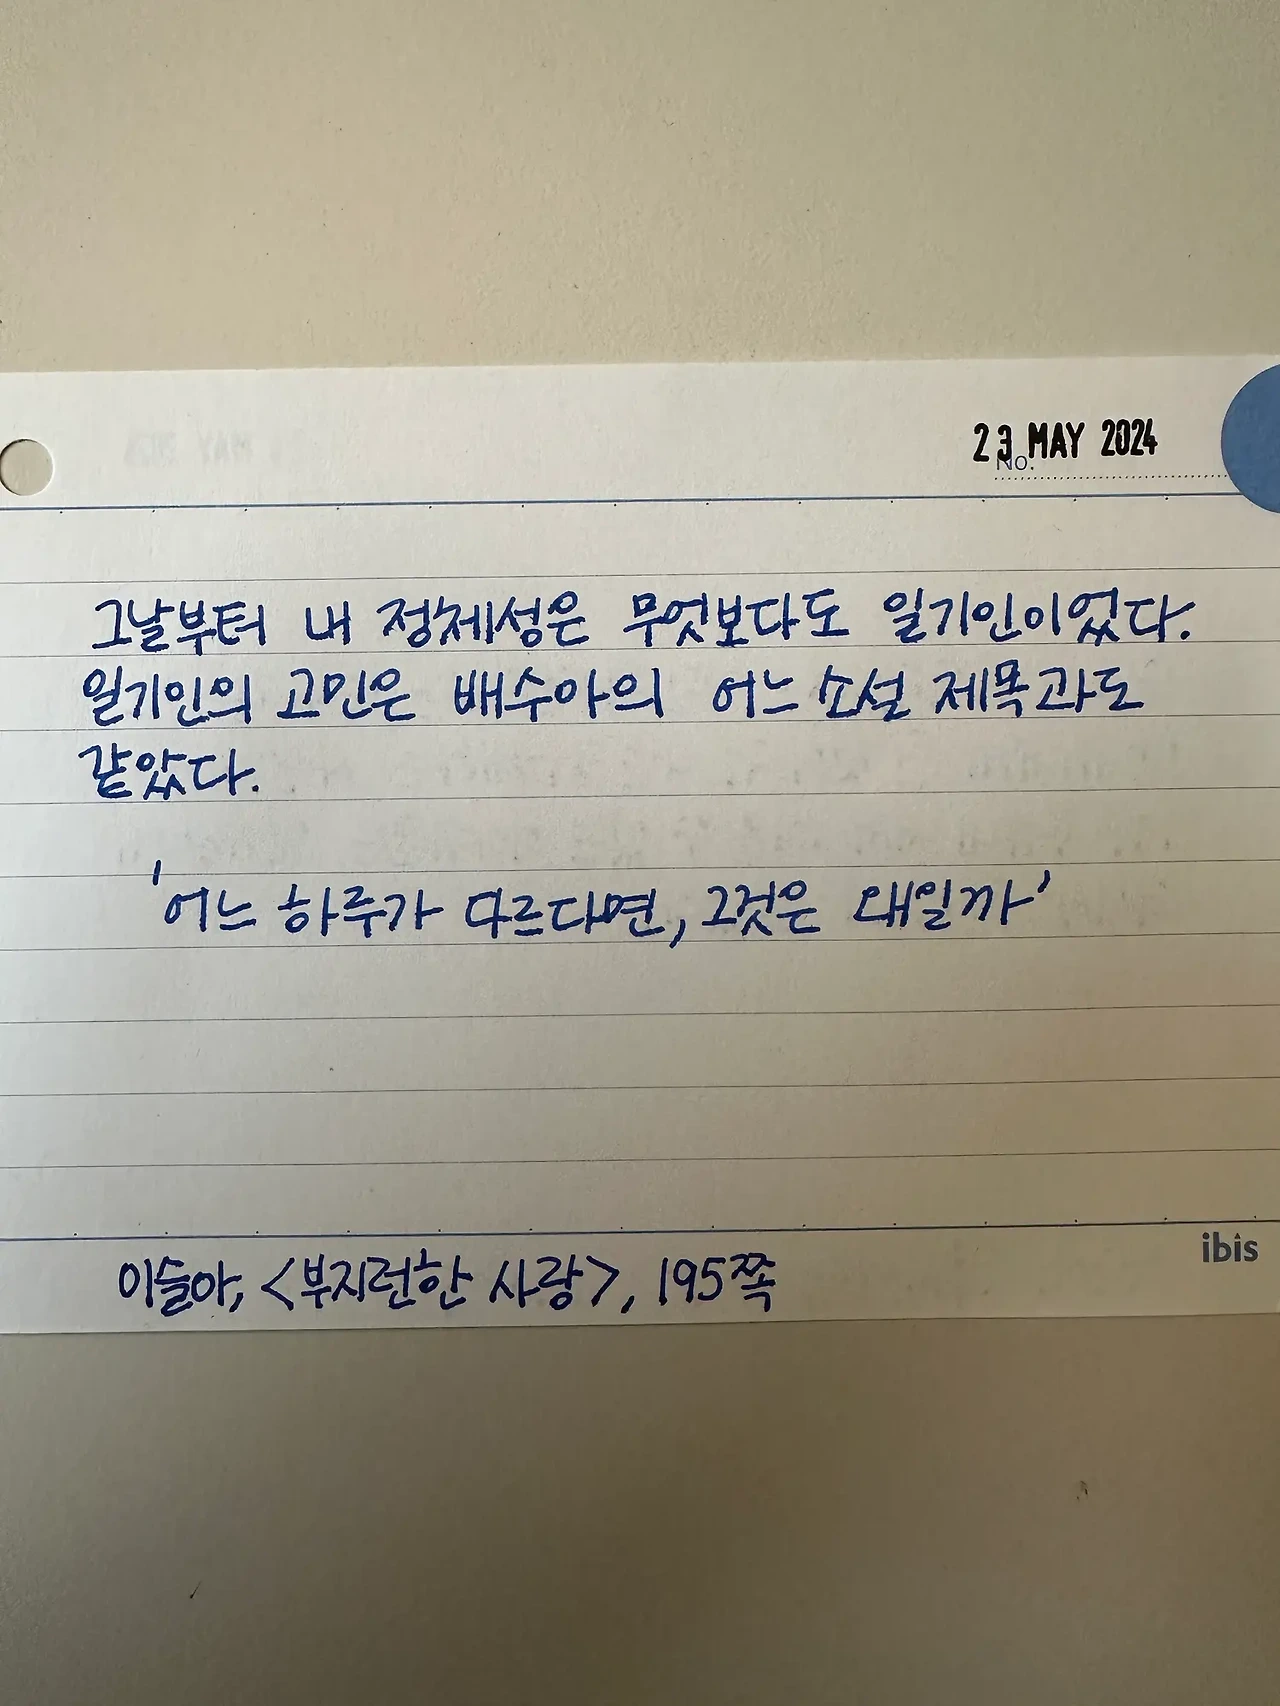 23 MAY 2024
No.
그날부터 내 정체성은 무엇보다도 일기인이었다.
일기인의 고민은 배수아의 어느 소설 제목과도
같았다.
'어느 하루가 다르다면, 그것은 왜일까'
ibis
이슬아, <부지런한 사랑>, 195쪽